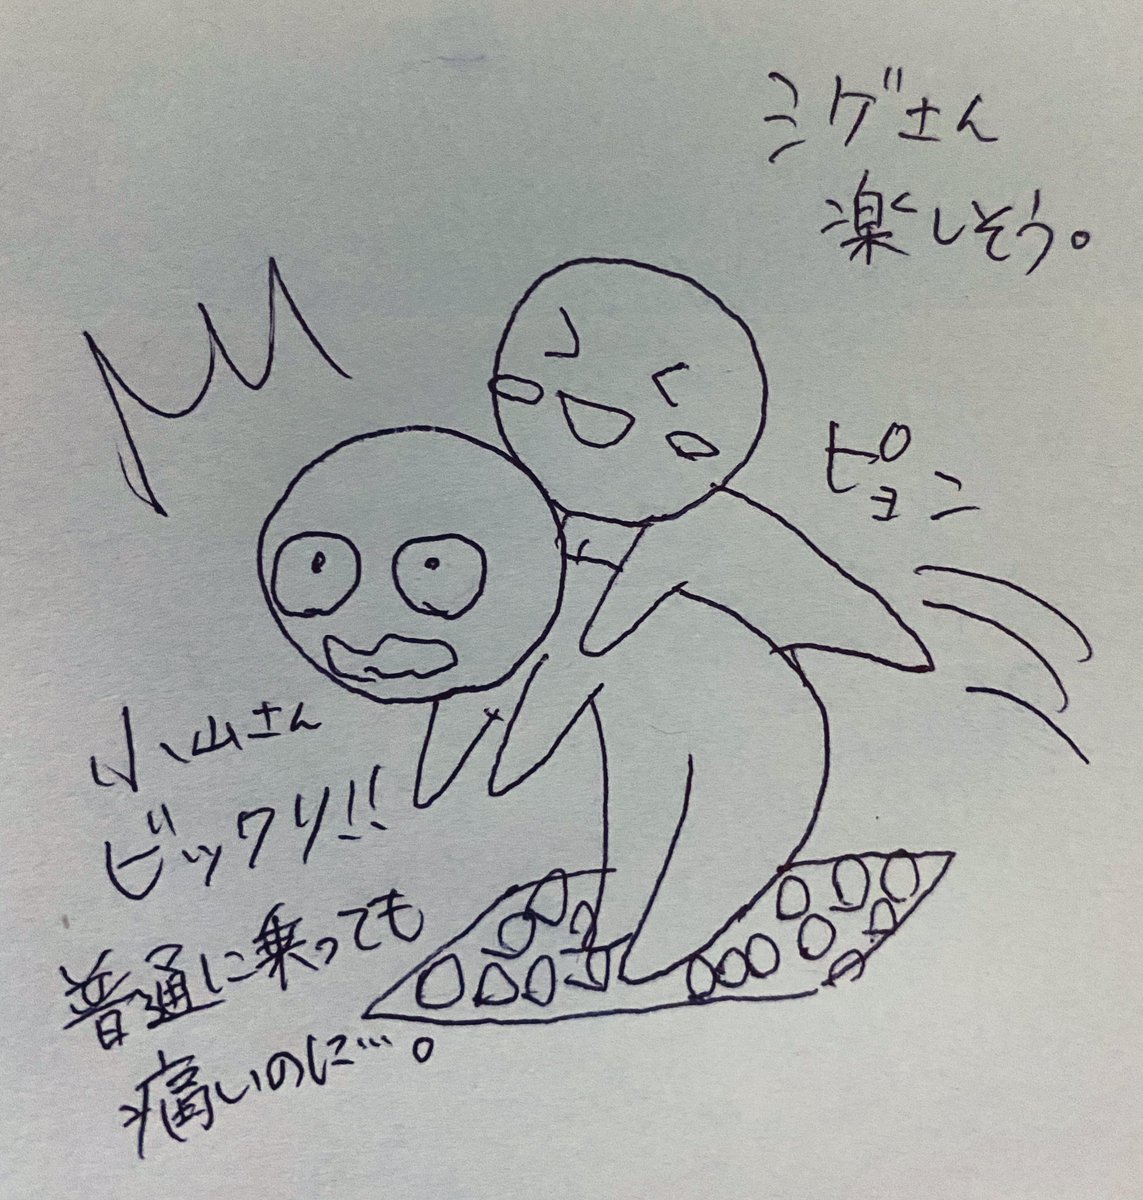 シゲさん
楽しそう。
ピョン
小山さん
ビックリ!!
普通に乗っても
痛いのに…。